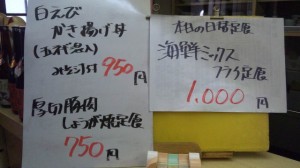 白えび
かき揚げ丼
(五才ギ名入)
みそ汁付 950円
厚切豚肉
しょうが焼定食
750円
本日の日替定食
海鮮ミックス
フライ定食
1.000円